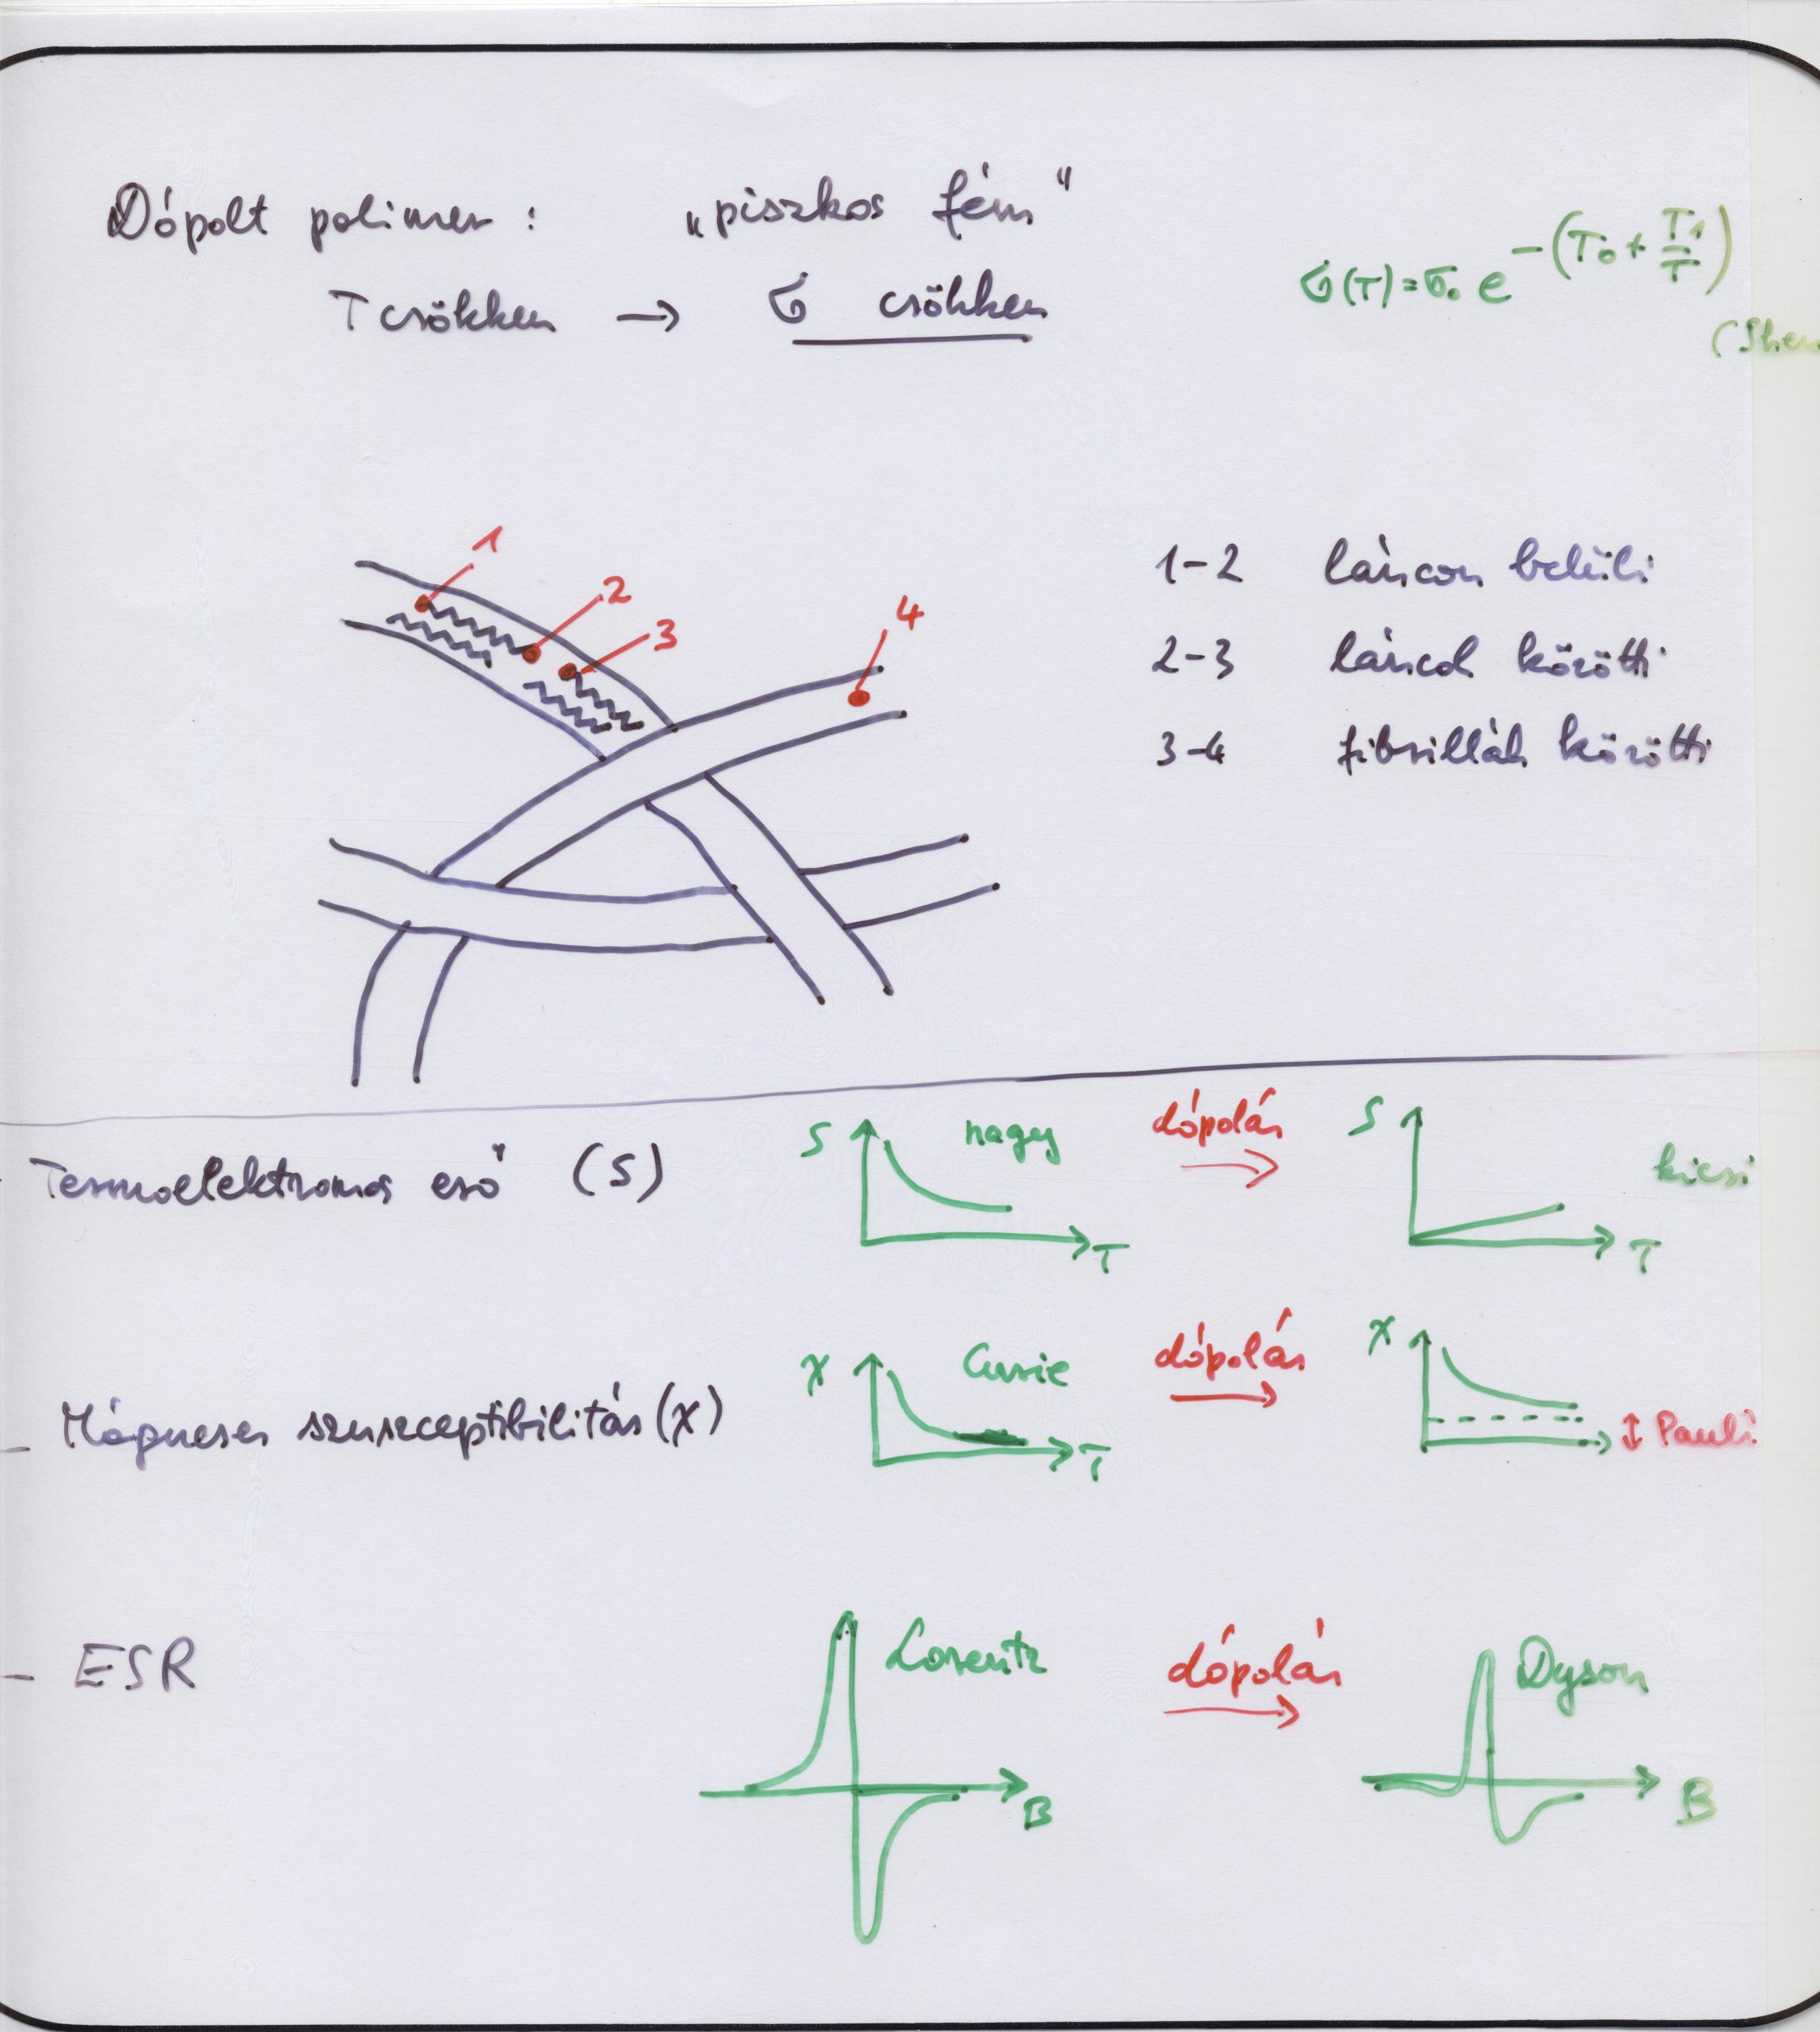 Dópolt polimer : „piszkos fém"
T csökken → σ csökken
σ(T)=σ₀ e^-(T₀ + T₁/T)
(Shen
1
2
3
4
1-2 láncon belüli
2-3 láncok közötti
3-4 fibrillák közötti
Termoelektromos erő (S)
S nagy T
dópolás
S kicsi T
- Mágneses szuszceptibilitás (χ)
χ Curie T
dópolás
χ Pauli
- ESR
Lorentz B
dópolás
Dyson B